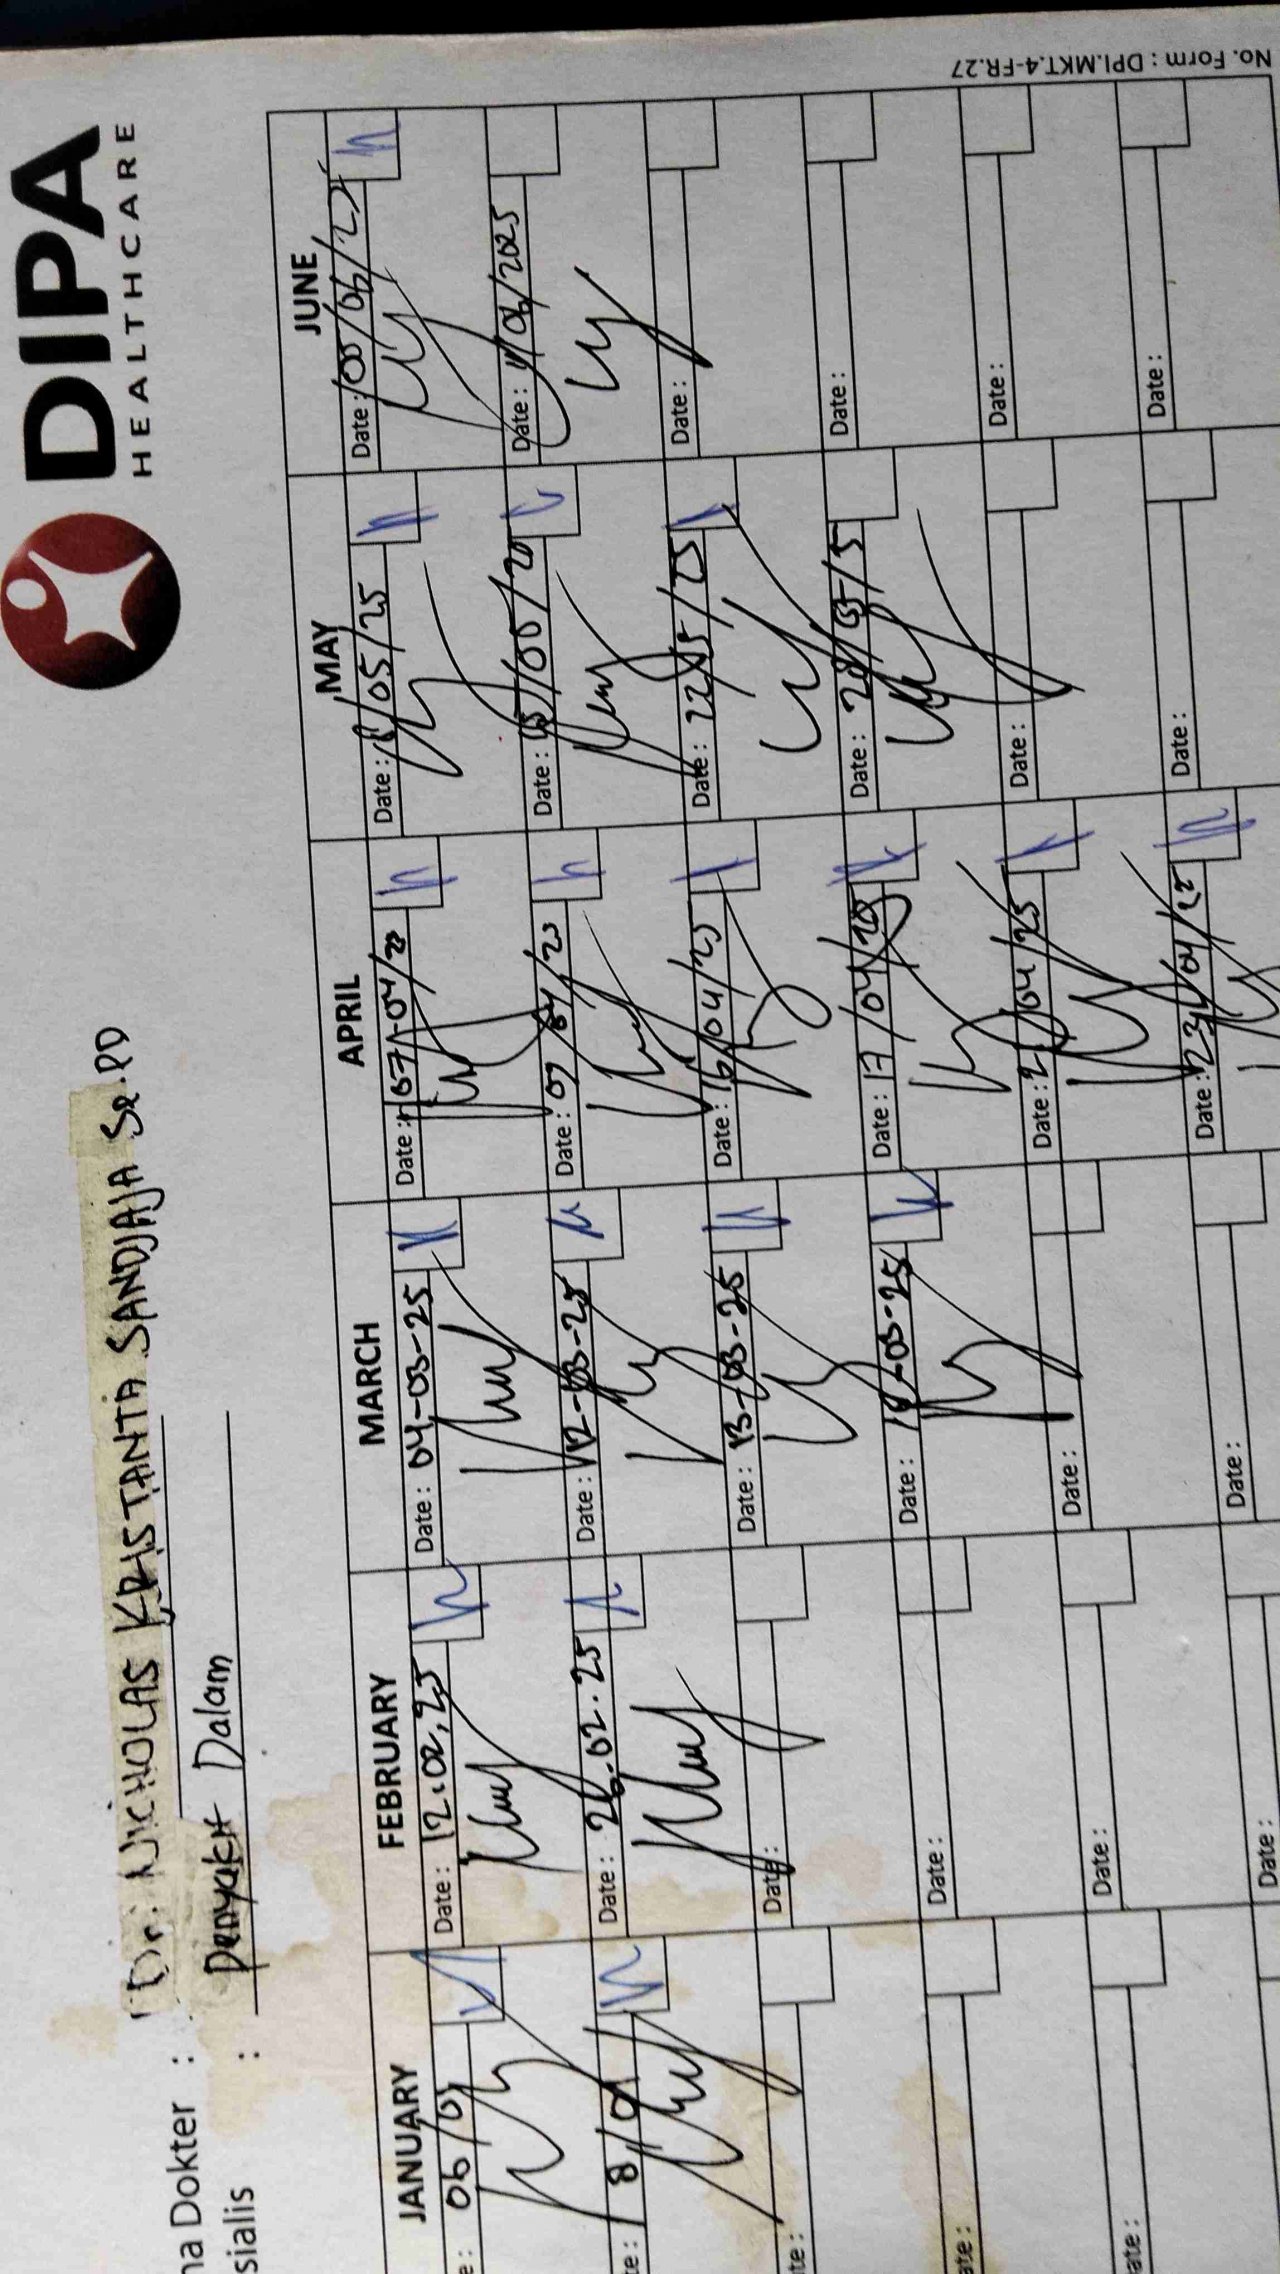 DIPA
HEALTHCARE
na Dokter : Dr. NICHOLAS KRISTANTA SANDJAJA Sp.PD
sialis : Penyakit Dalam
JANUARY FEBRUARY MARCH APRIL MAY JUNE
e: 06/01 Date: 12.02.25 Date: 04-03-25 Date: 07-04/25 Date: /05/25 Date: /06/25
te: 8/01 Date: 26.02.25 Date: 12-03-25 Date: 09/04/25 Date: 15/05/20 Date: 11/06/2025
te: Date: Date: 13-03-25 Date: 16/04/25 Date: 22/05/25 Date:
ate: Date: Date: 19-03-25 Date: 17/04/25 Date: 28/05/5 Date:
ate: Date: Date: Date: 2/04/25 Date: Date:
Date: Date: Date: 23/04/25 Date: Date:
No. Form : DPI.MKT.4-FR.27